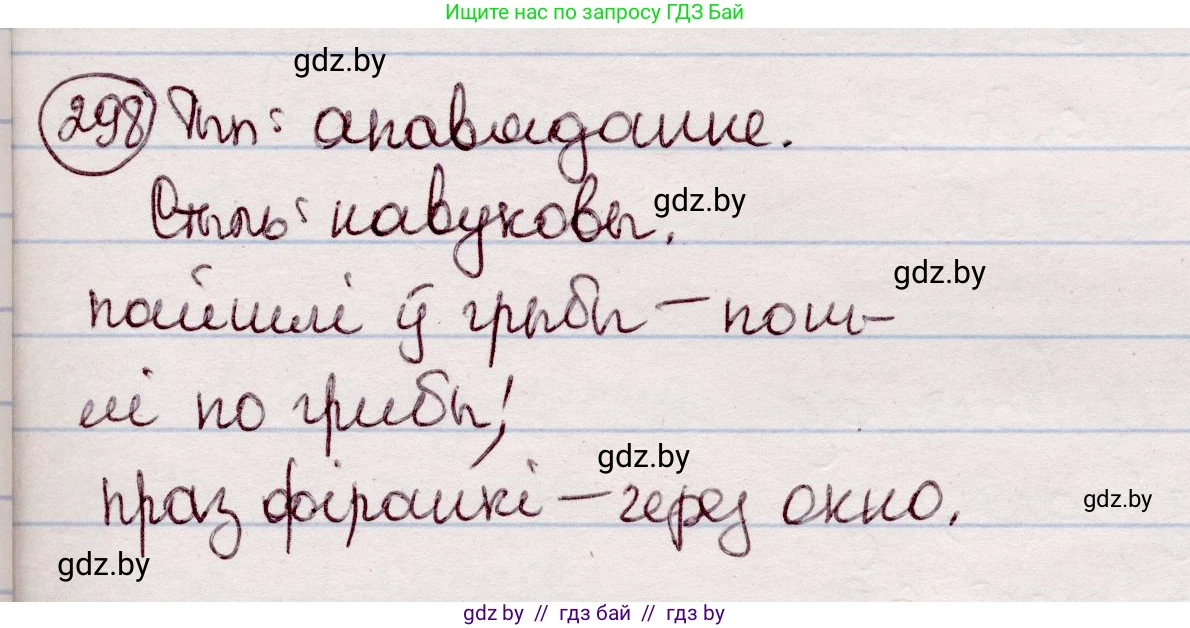 Ищите нас по запросу ГДЗ Бай
gdz.by
298 Тып: апавяданне.
Стыль: навуковы.
gdz.by
gdz.by
пайшлі ў грыбы — пош-
лі по грибы;
gdz.by
праз фіранкі — через окно.
gdz.by
gdz.by
gdz by // гдз бай // гдз by